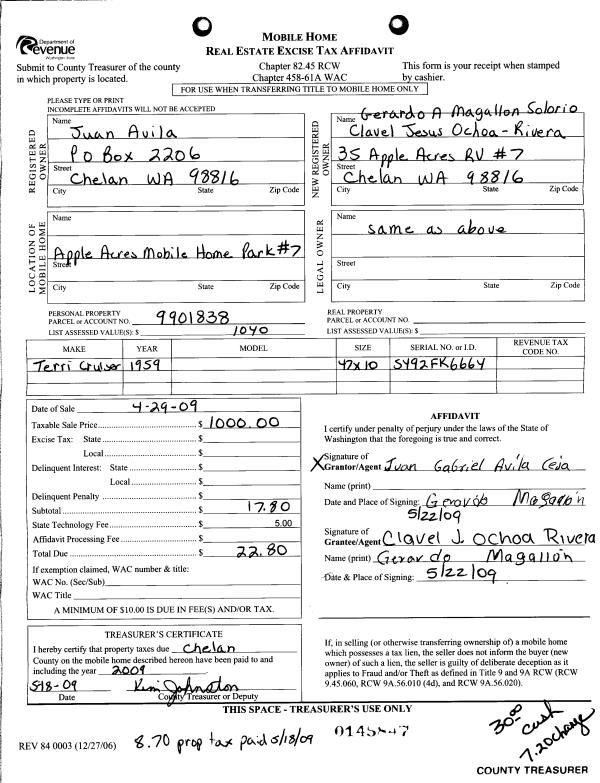 Department of
Revenue
Washington State
MOBILE HOME
REAL ESTATE EXCISE TAX AFFIDAVIT
Submit to County Treasurer of the county
in which property is located.
Chapter 82.45 RCW
Chapter 458-61A WAC
This form is your receipt when stamped
by cashier.
FOR USE WHEN TRANSFERRING TITLE TO MOBILE HOME ONLY
PLEASE TYPE OR PRINT
INCOMPLETE AFFIDAVITS WILL NOT BE ACCEPTED
REGISTERED OWNER
Name
Juan Avila
PO Box 2206
Street
Chelan WA 98816
City State Zip Code
NEW REGISTERED OWNER
Name Gerardo A Magallon Solorio
Clavel Jesus Ochoa-Rivera
35 Apple Acres RV #7
Street
Chelan WA 98816
City State Zip Code
LOCATION OF MOBILE HOME
Name
Apple Acres Mobile Home Park #7
Street
City State Zip Code
LEGAL OWNER
Name
same as above
Street
City State Zip Code
PERSONAL PROPERTY
PARCEL or ACCOUNT NO. 9901838
LIST ASSESSED VALUE(S): $ 1040
REAL PROPERTY
PARCEL or ACCOUNT NO.
LIST ASSESSED VALUE(S): $
MAKE YEAR MODEL SIZE SERIAL NO. or I.D. REVENUE TAX CODE NO.
Terri Cruiser 1959 47x10 S492FK6664
Date of Sale 4-29-09
Taxable Sale Price $ 1000.00
Excise Tax: State $
Local $
Delinquent Interest: State $
Local $
Delinquent Penalty $
Subtotal $ 17.80
State Technology Fee $ 5.00
Affidavit Processing Fee $
Total Due $ 22.80
If exemption claimed, WAC number & title:
WAC No. (Sec/Sub)
WAC Title
A MINIMUM OF $10.00 IS DUE IN FEE(S) AND/OR TAX.
AFFIDAVIT
I certify under penalty of perjury under the laws of the State of
Washington that the foregoing is true and correct.
X Signature of
Grantor/Agent Juan Gabriel Avila Ceja
Name (print)
Date and Place of Signing: Gerardo Magallón
5/22/09
Signature of
Grantee/Agent Clavel J. Ochoa Rivera
Name (print) Gerardo Magallón
Date & Place of Signing: 5/22/09
TREASURER'S CERTIFICATE
I hereby certify that property taxes due Chelan
County on the mobile home described hereon have been paid to and
including the year 2009
5-18-09 Kim Johnston
Date County Treasurer or Deputy
If, in selling (or otherwise transferring ownership of) a mobile home
which possesses a tax lien, the seller does not inform the buyer (new
owner) of such a lien, the seller is guilty of deliberate deception as it
applies to Fraud and/or Theft as defined in Title 9 and 9A RCW (RCW
9.45.060, RCW 9A.56.010 (4d), and RCW 9A.56.020).
THIS SPACE - TREASURER'S USE ONLY
REV 84 0003 (12/27/06)
8.70 prop tax paid 5/18/09
30.00 cash
7.20 change
COUNTY TREASURER